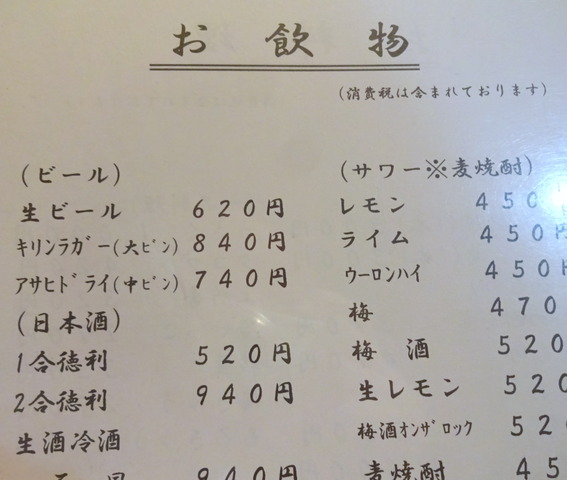 お飲物
(消費税は含まれております)
(ビール)
生ビール 620円
キリンラガー(大ビン) 840円
アサヒドライ(中ビン) 740円
(日本酒)
1合徳利 520円
2合徳利 940円
生酒冷酒
940円
(サワー※麦焼酎)
レモン 450
ライム 450円
ウーロンハイ 450
梅 470
梅酒 520
生レモン 520
梅酒オンザロック 52
麦焼酎 45